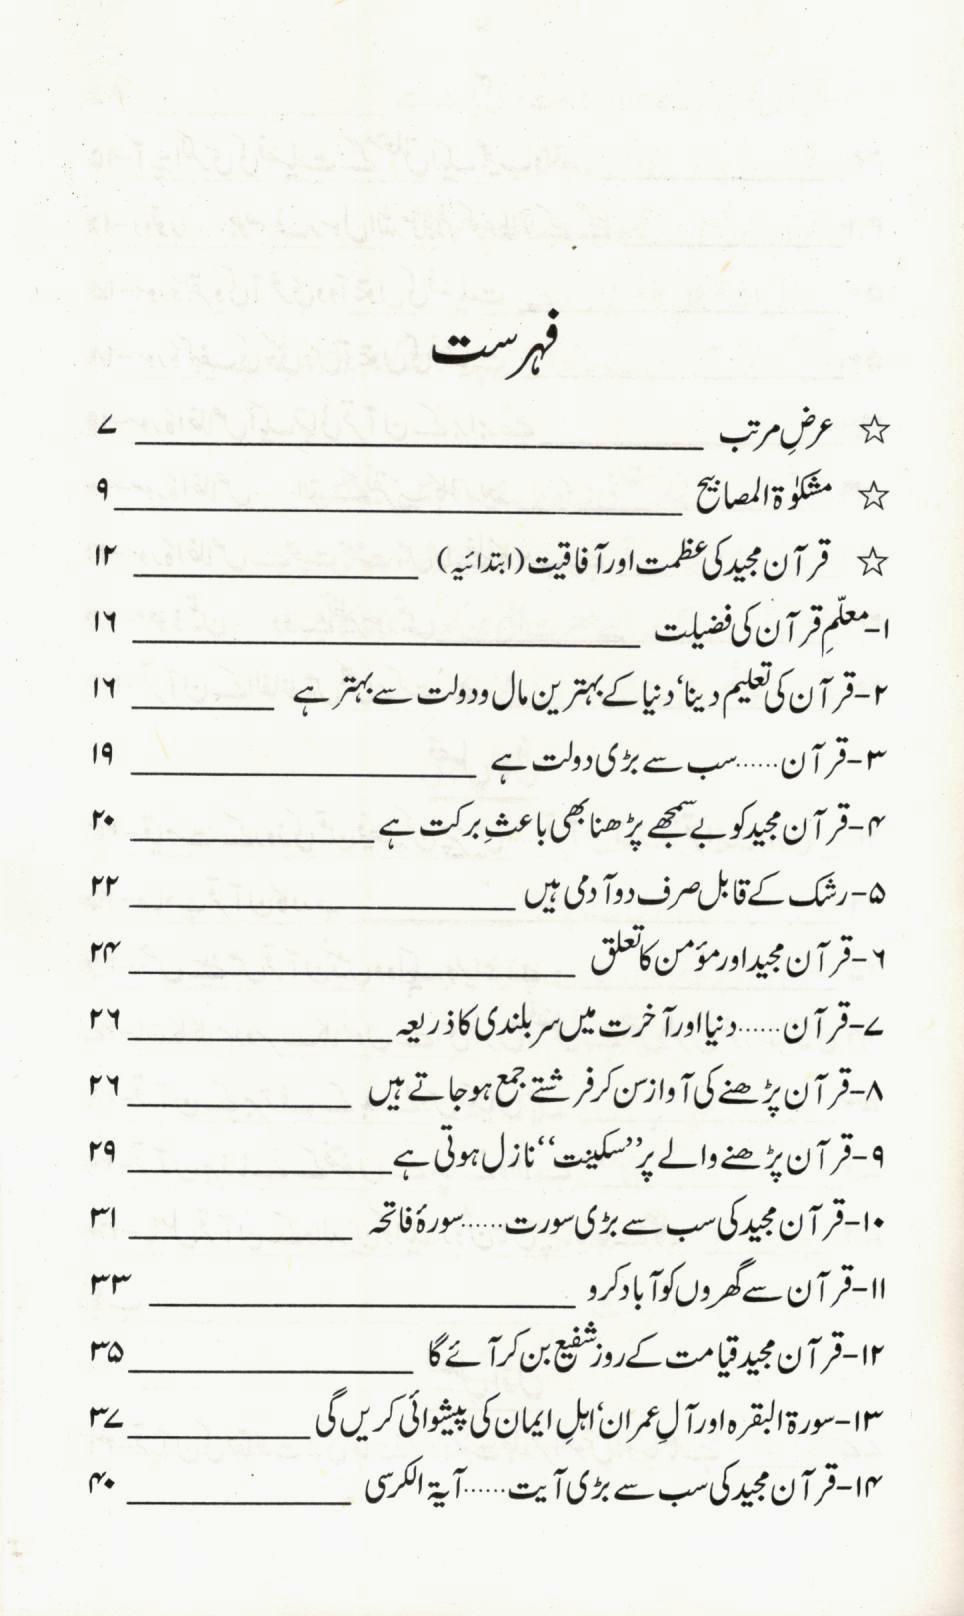 فہرست
☆ عرضِ مرتب ۷
☆ مشکوٰۃ المصابیح ۹
☆ قرآن مجید کی عظمت اور آفاقیت (ابتدائیہ) ۱۲
۱- معلّمِ قرآن کی فضیلت ۱۶
۲- قرآن کی تعلیم دینا، دنیا کے بہترین مال ودولت سے بہتر ہے ۱۶
۳- قرآن ...... سب سے بڑی دولت ہے ۱۹
۴- قرآن مجید کو بے سمجھے پڑھنا بھی باعثِ برکت ہے ۲۰
۵- رشک کے قابل صرف دو آدمی ہیں ۲۲
۶- قرآن مجید اور مؤمن کا تعلق ۲۴
۷- قرآن ...... دنیا اور آخرت میں سربلندی کا ذریعہ ۲۶
۸- قرآن پڑھنے کی آواز سن کر فرشتے جمع ہو جاتے ہیں ۲۶
۹- قرآن پڑھنے والے پر ’’سکینت‘‘ نازل ہوتی ہے ۲۹
۱۰- قرآن مجید کی سب سے بڑی سورت ...... سورۂ فاتحہ ۳۱
۱۱- قرآن سے گھروں کو آباد کرو ۳۳
۱۲- قرآن مجید قیامت کے روز شفیع بن کر آئے گا ۳۵
۱۳- سورۃ البقرہ اور آلِ عمران، اہلِ ایمان کی پیشوائی کریں گی ۳۷
۱۴- قرآن مجید کی سب سے بڑی آیت ...... آیۃ الکرسی ۴۰